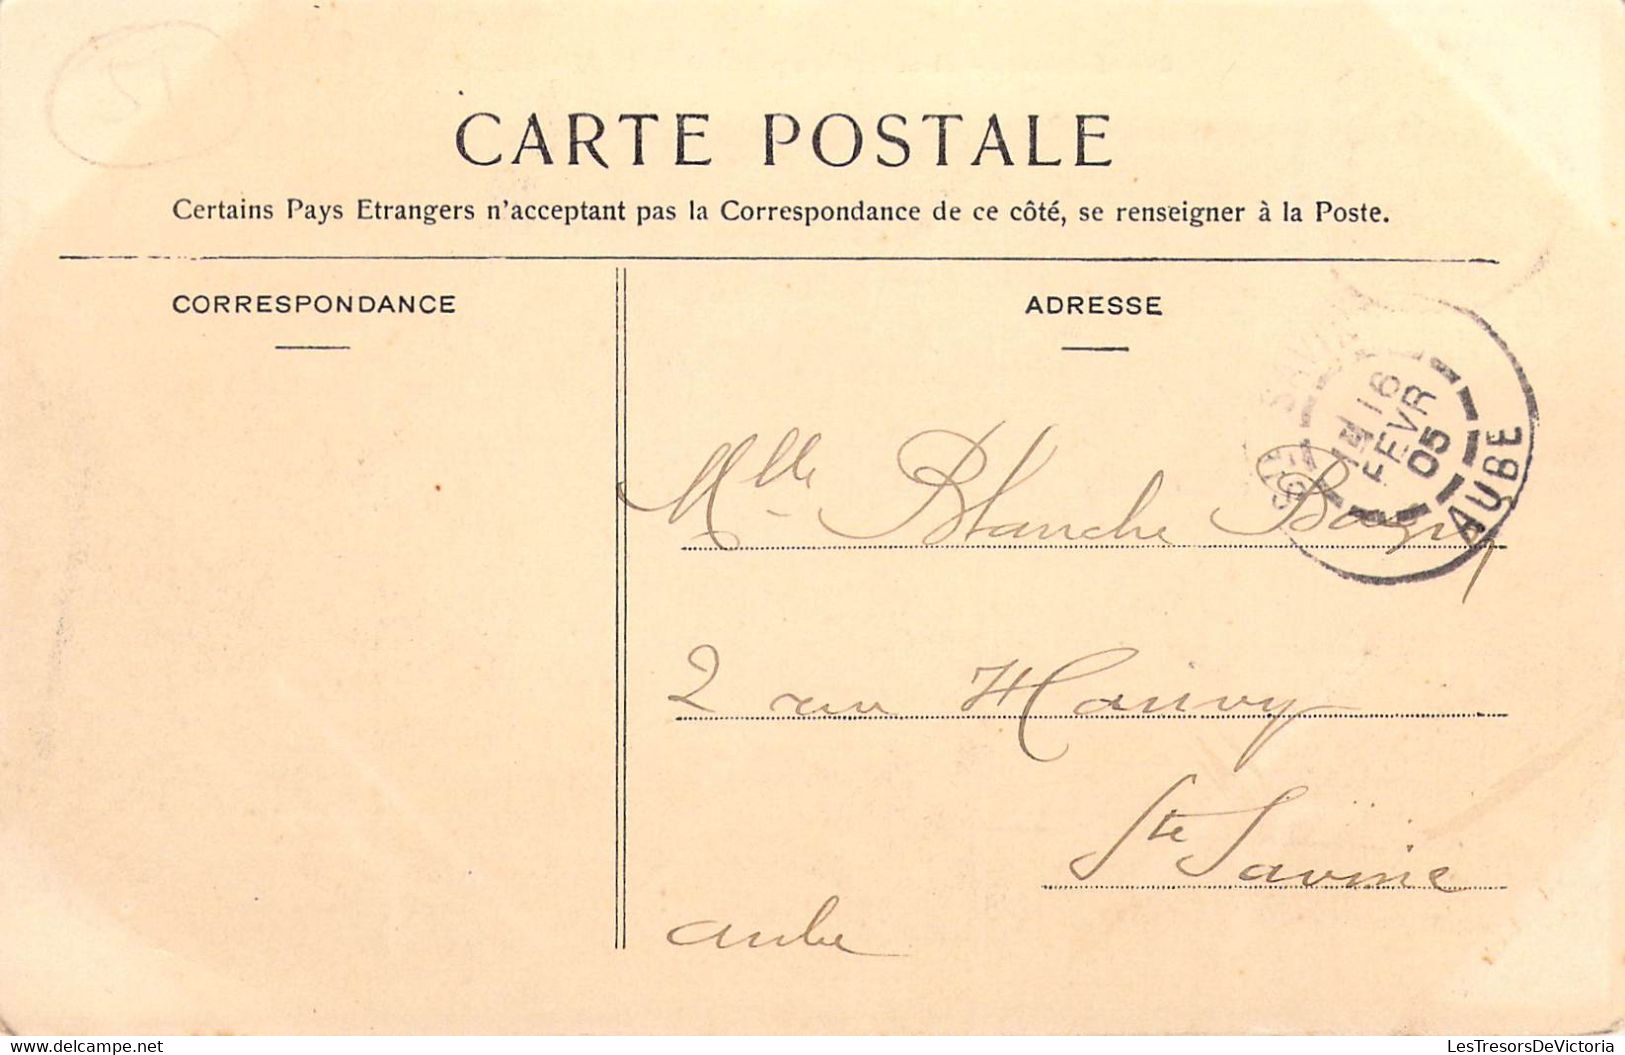 51
CARTE POSTALE
Certains Pays Etrangers n'acceptant pas la Correspondance de ce côté, se renseigner à la Poste.
CORRESPONDANCE
ADRESSE
16
FEVR
05
AUBE
Mlle Blanche
2 rue
Ste Savine
aube
www.delcampe.net
LesTresorsDeVictoria